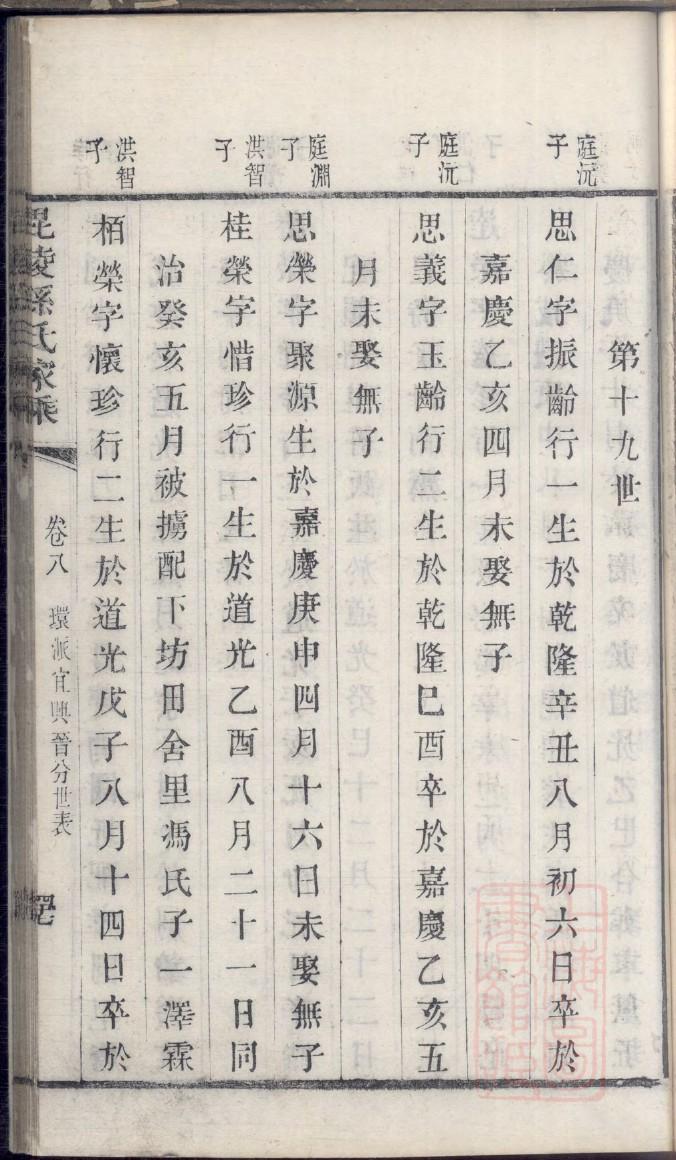 第十九世
庭沅子
思仁字振齡行一生於乾隆辛丑八月初六日卒於
嘉慶乙亥四月未娶無子
庭沅子
思義字玉齡行二生於乾隆巳酉卒於嘉慶乙亥五
月未娶無子
庭淵子
思榮字聚源生於嘉慶庚申四月十六日未娶無子
洪智子
桂榮字惜珍行一生於道光乙酉八月二十一日同
治癸亥五月被擄配下坊田舍里馮氏子一澤霖
洪智子
栢榮字懷珍行二生於道光戊子八月十四日卒於
毘陵孫氏家乘
卷八 環派宜興晉分世表